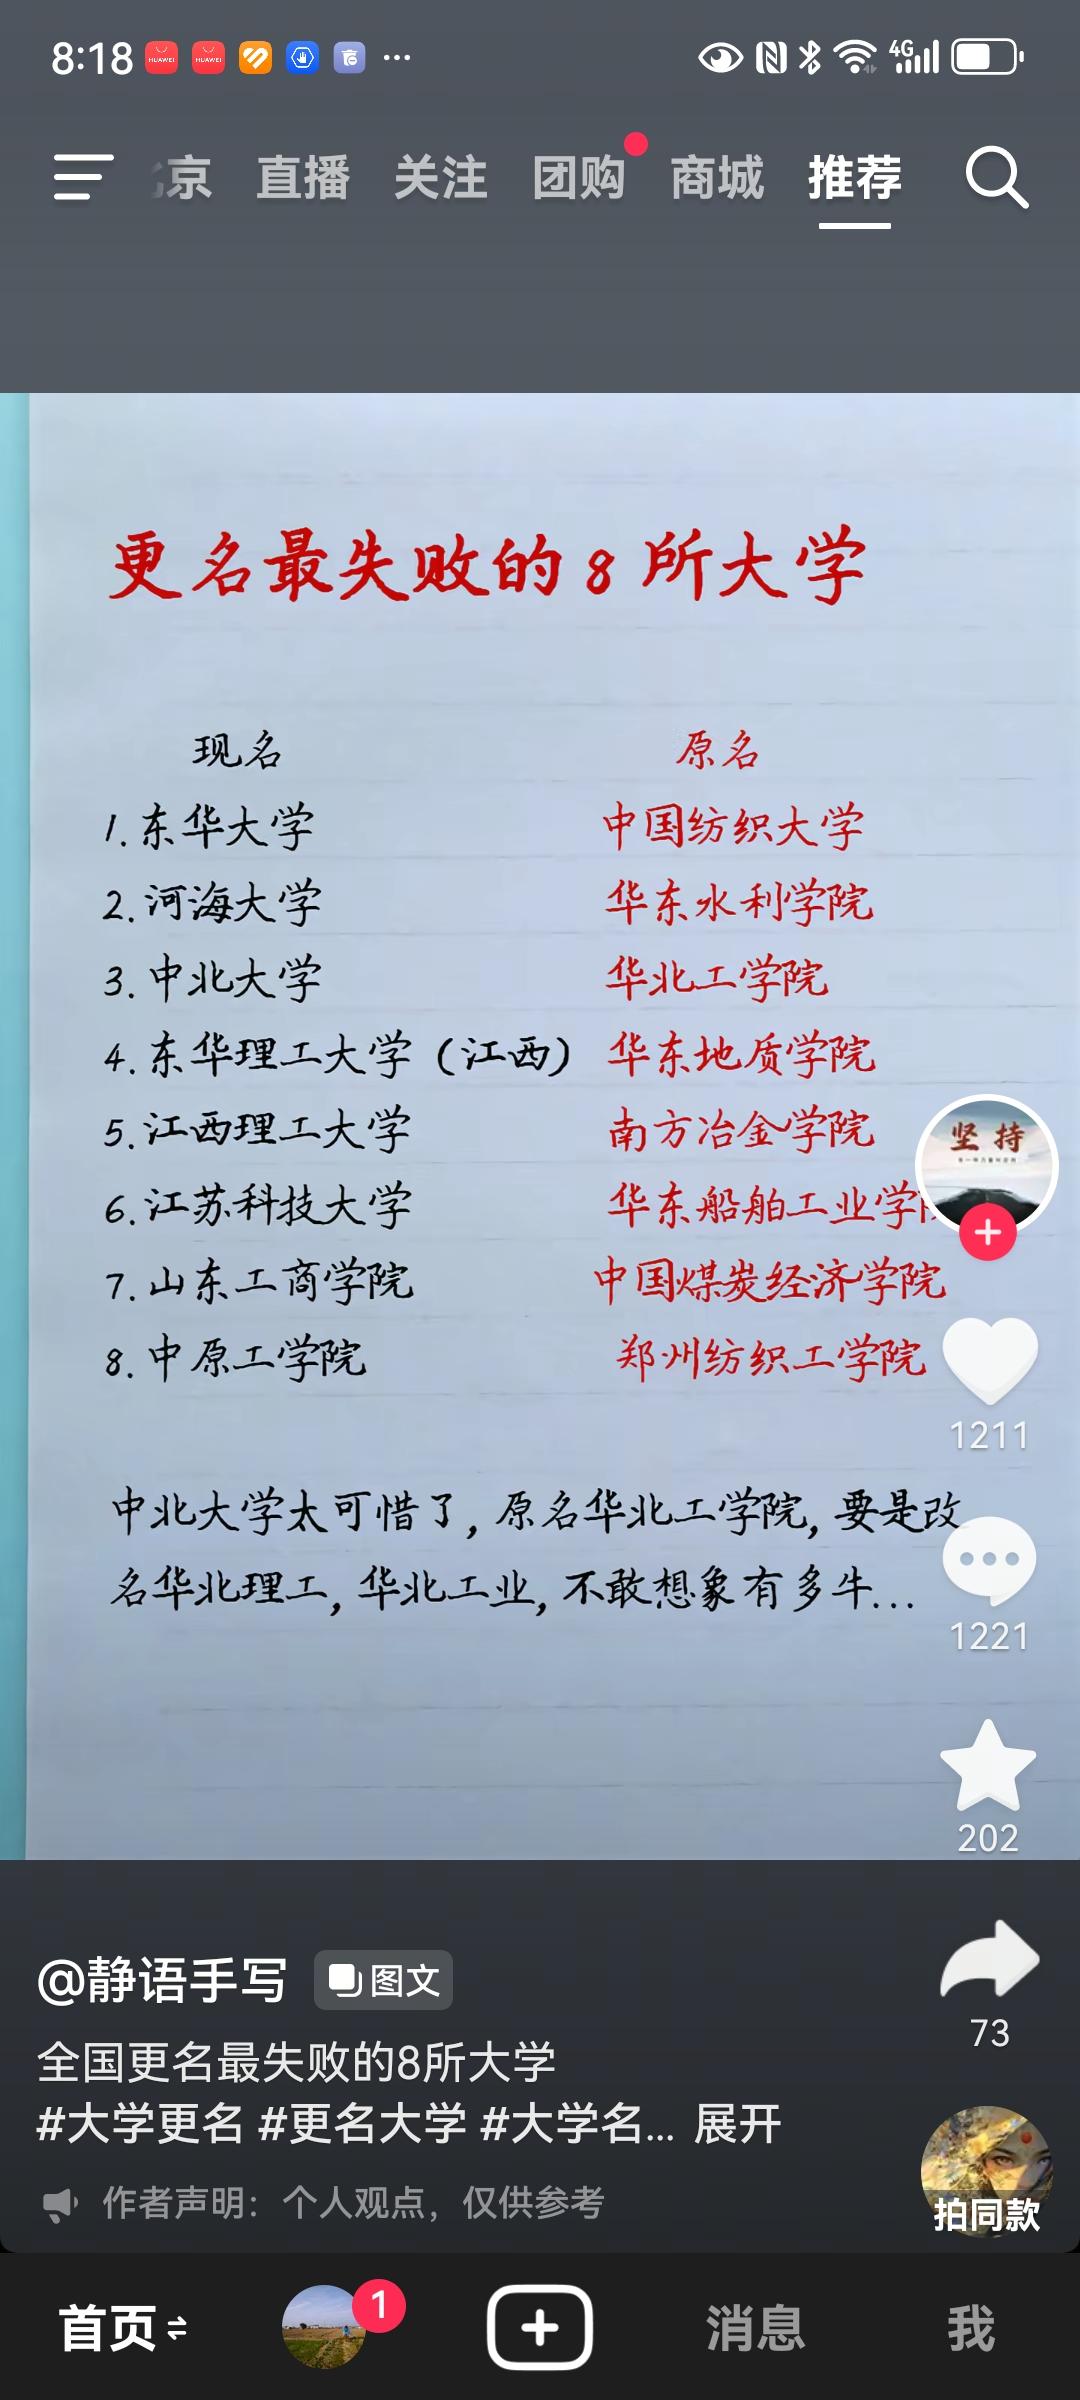 8:18
HUAWEI
HUAWEI
4G
京 直播 关注 团购 商城 推荐
更名最失败的8所大学
现名 原名
1.东华大学 中国纺织大学
2.河海大学 华东水利学院
3.中北大学 华北工学院
4.东华理工大学(江西) 华东地质学院
5.江西理工大学 南方冶金学院
6.江苏科技大学 华东船舶工业学
7.山东工商学院 中国煤炭经济学院
8.中原工学院 郑州纺织工学院
坚持
1211
中北大学太可惜了,原名华北工学院,要是改
名华北理工,华北工业,不敢想象有多牛...
1221
202
@静语手写 图文
73
全国更名最失败的8所大学
#大学更名 #更名大学 #大学名... 展开
作者声明：个人观点，仅供参考
拍同款
首页 1 消息 我